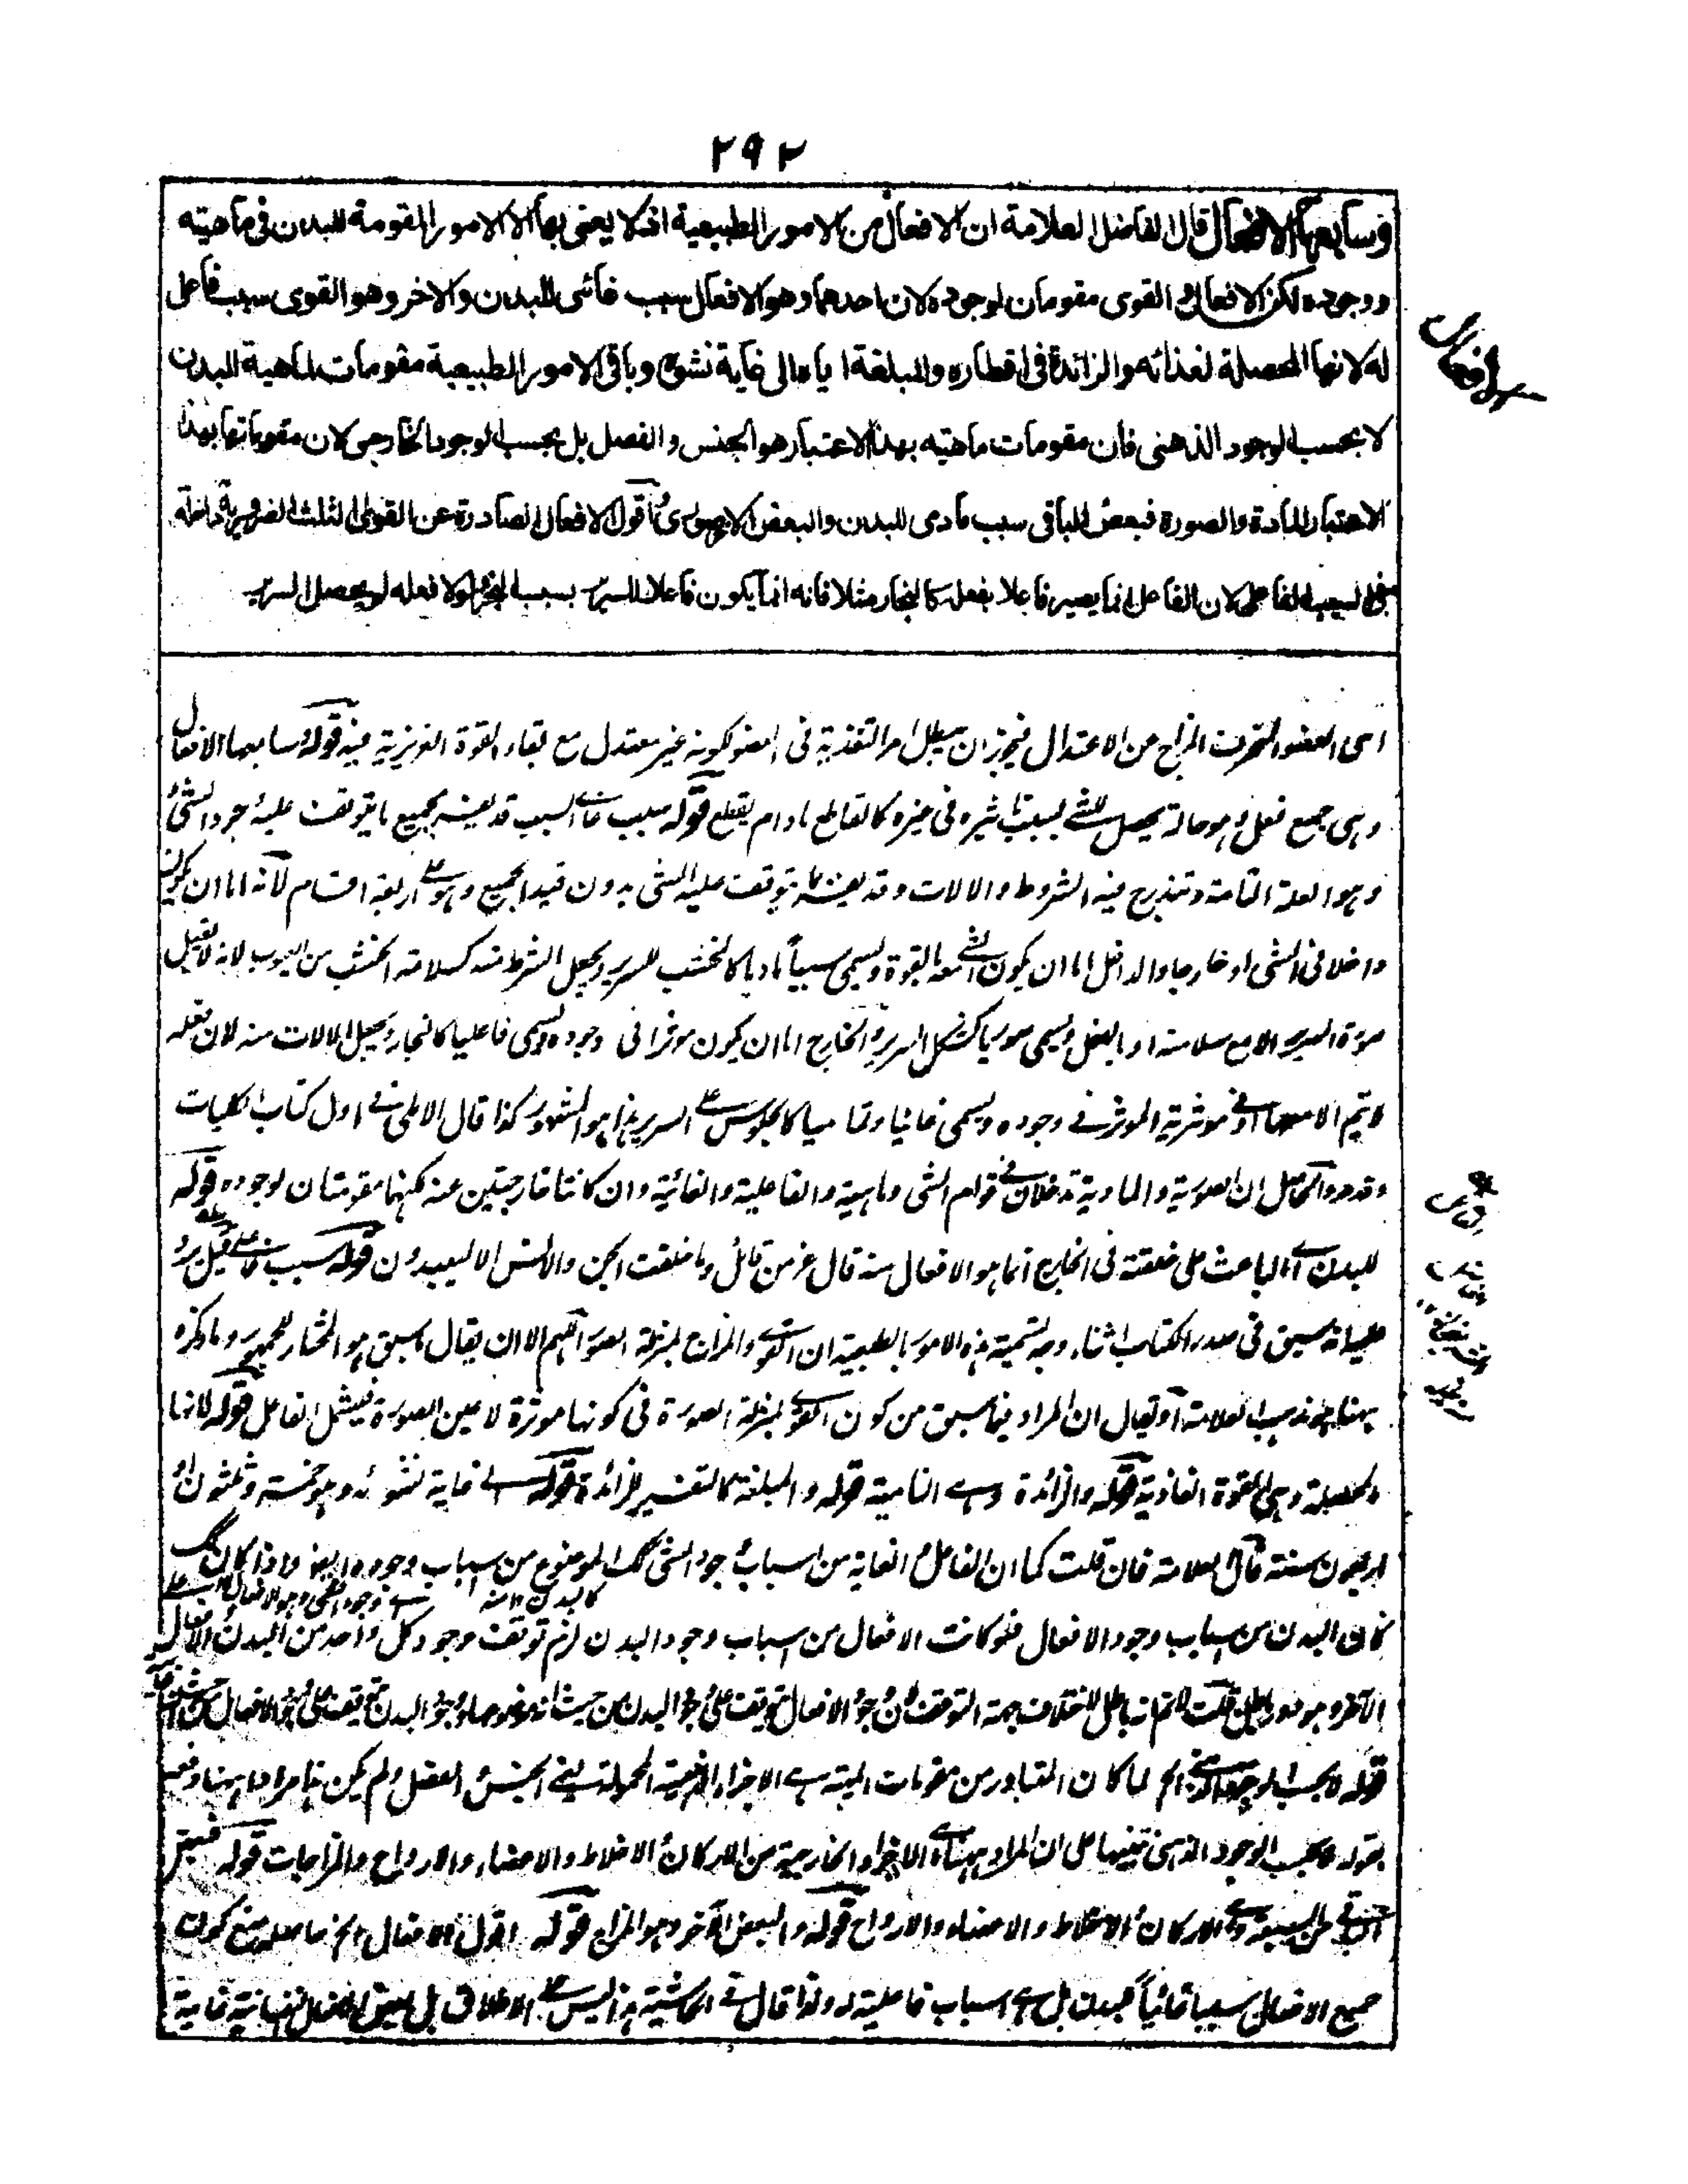 ٢٩٢
وسابعها الافعال قال الفاضل العلامة ان الافعال من الامور الطبيعية اذ لا يعنى بها الا الامور المقومة للبدن فى ماهيته
ووجوده لكن الافعال و القوى مقومان لوجوده لان احدهما وهو الافعال سبب غائى للبدن والاخر وهو القوى سبب فاعل
له لانها المحصلة لغذائه والزائدة فى اقطاره والمبلغة اياه الى غاية نشوه وباقى الامور الطبيعية مقومات لماهية البدن
لا بحسب الوجود الذهنى فان مقومات ماهيته بهذا الاعتبار هو الجنس والفصل بل بحسب الوجود الخارجى لان مقوماتها بهذا
الاعتبار المادة والصورة فبعض الباقى سبب مادى للبدن والبعض الاخر صورى اقول الافعال الصادرة عن القوى الثلث الضرورية داخلة
فى السبب الفاعلى لان الفاعل انما يصير فاعلا بفعله كالنجار مثلا فانه انما يكون فاعلا للسرير بسبب النجر ولولا فعله لم يحصل السرير
الافعال
اى العضو المنحرف المزاج عن الاعتدال فيجوز ان يبطل امر التغذية فى العضو لكونه غير معتدل مع بقاء القوة الغريزية فيه قوله وسابعها الافعال
وهى جمع فعل وهو حالة يحصل للشئ بسبب تاثيره فى غيره كالقاطع مادام يقطع قوله سبب غائى السبب قد يعنى به جميع ما يتوقف عليه وجود الشئ
وهو العلة التامة وتندرج فيه الشروط والالات وقد يعنى به ما يتوقف عليه الشئ بدون قيد الجميع وهو على اربعة اقسام لانه اما ان يكون
داخلا فى الشئ او خارجا والداخل اما ان يكون الشئ معه بالقوة ويسمى سببا ماديا كالخشب للسرير ويجعل الشرط منه كسلامة الخشب من العيوب لانه لا يقبل
صورة السرير الا مع سلامته او بالفعل ويسمى صوريا كشكل السرير والخارج اما ان يكون موثرا فى وجوده ويسمى فاعليا كالنجار ويجعل الالات منه لان فعله
لا يتم الا بها او فى موثرية الموثر فى وجوده ويسمى غائيا وتماميا كالجلوس على السرير هذا هو المشهور كذا قال الاملى فى اول كتاب الكليات
وقد مر والحاصل ان الصورية والمادية تدخلان فى قوام الشئ وماهيته والفاعلية والغائية وان كانتا خارجتين عنه لكنهما مقومتان لوجوده قوله
للبدن اى الباعث على خلقته فى الخارج انما هو الافعال منه قال عز من قائل وما خلقت الجن والانس الا ليعبدون قوله سبب فاعلى له قيل يرد
عليه انه سبق فى صدر الكتاب اثناء وجه تسمية هذه الامور بالطبيعية ان القوى والمزاج بمنزلة الصورة اللهم الا ان يقال ما سبق هو المختار للجمهور وما ذكره
ههنا هو مذهب العلامة او يقال ان المراد فيما سبق من كون القوى بمنزلة الصورة فى كونها موثرة لا عين الصورة فيشمل الفاعل قوله لانها
المحصلة وهى القوة الغاذية قوله والزائدة وهى النامية قوله والمبلغة كالتفسير للزائدة قوله الى غاية نشوئه وهو خمسة وثلثون او
اربعون سنة قال العلامة فان قلت كما ان الفاعل والغاية من اسباب وجود الشئ كذلك الموضوع من اسباب وجوده ايضا واذا كان كذلك
كان البدن من اسباب وجود الافعال فلو كانت الافعال من اسباب وجود البدن لزم توقف وجود كل واحد من البدن والافعال على
الاخر وهو دور باطل قلت لا نم انه باطل لاختلاف جهة التوقف لان وجود الافعال يتوقف على وجود البدن من حيث انه موضوعها ووجود البدن يتوقف على وجود الافعال من حيث
قوله لا بحسب الوجود الذهنى الخ لما كان المتبادر من مقومات الماهية هى الاجزاء الذهنية المحمولة يعنى الجنس والفصل ولم يكن هذا مرادا ههنا
بقوله لا بحسب الوجود الذهنى تنبيها على ان المراد ههنا هى الاجزاء الخارجية من الاركان والاخلاط والاعضاء والارواح والمزاجات قوله فبعض
الباقى وهى الاركان والاخلاط والاعضاء والارواح قوله والبعض الاخر وهو المزاج قوله اقول الافعال الخ حاصله منع كون
جميع الافعال سببا غائيا للبدن بل هى اسباب فاعلية له ولذا قال فى الحاشية هذا ليس على الاطلاق بل بعض الافعال غائية